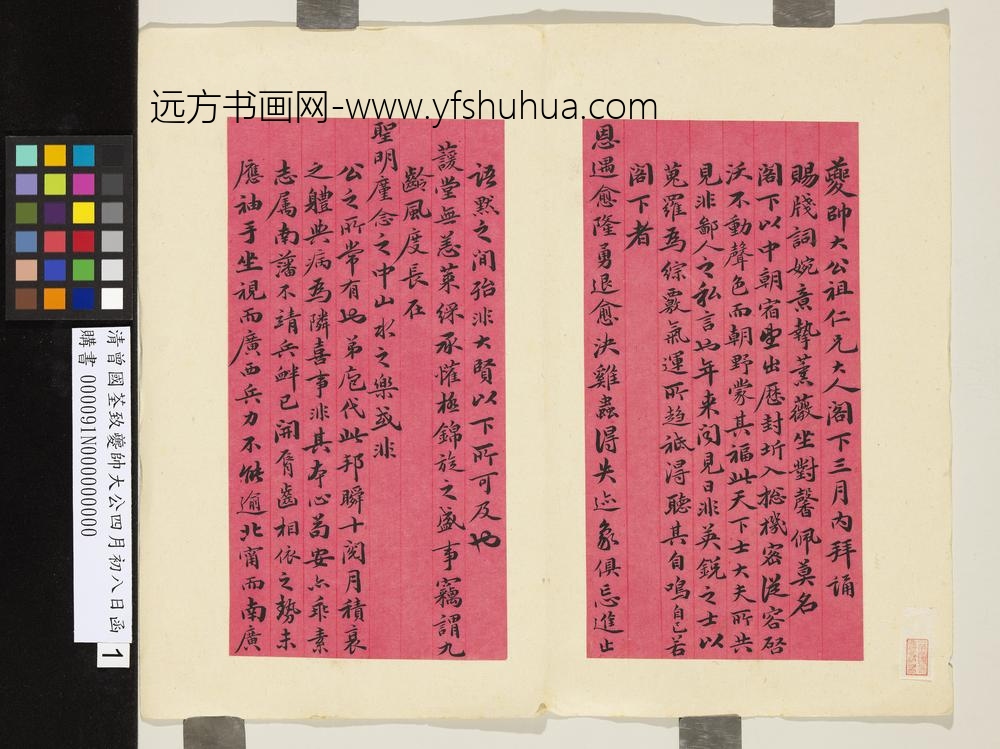 远方书画网-www.yfshuhua.com
夔帥大公祖仁兄大人閣下三月內拜誦
賜牋詞婉意摯薰薇坐對馨佩莫名
閣下以中朝宿望出歷封圻入總機密從容啟
沃不動聲色而朝野蒙其福此天下士大夫所共
見非鄙人之私言也年來闻見日非英銳之士以
蒐羅為綜覈氣運所趋祗得聽其自鳴自己若
閣下者
恩遇愈隆勇退愈決雞蟲得失迹象俱忘進止
語默之間殆非大賢以下所可及也
護堂無恙萊綵承懽極錦旋之盛事竊謂九
齡風度長在
聖明廑念之中山水之樂或非
公之所常有也弟庖代此邦瞬十閱月積衰
之軀典病為隣喜事非其本心苟安亦乖素
志属南藩不靖兵衅已開脣齒相依之勢未
應袖手坐視而廣西兵力不能逾北甯而南廣
清曾國荃致夔帥大公四月初八日函
購書 000091N000000000
1